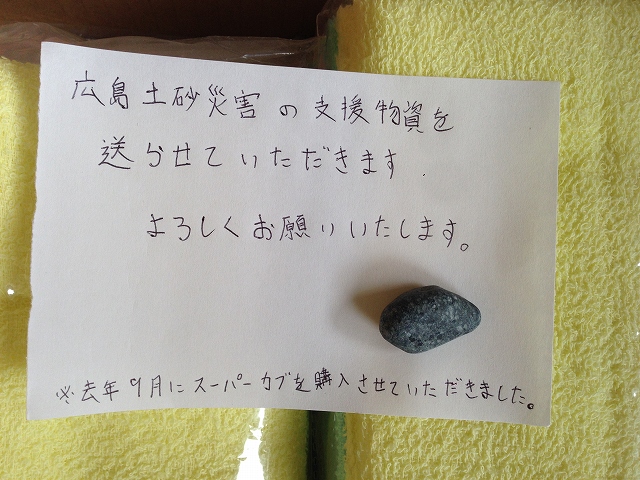 広島土砂災害の支援物資を
送らせていただきます.
よろしくお願いいたします。
※去年9月にスーパーカブを購入させていただきました。